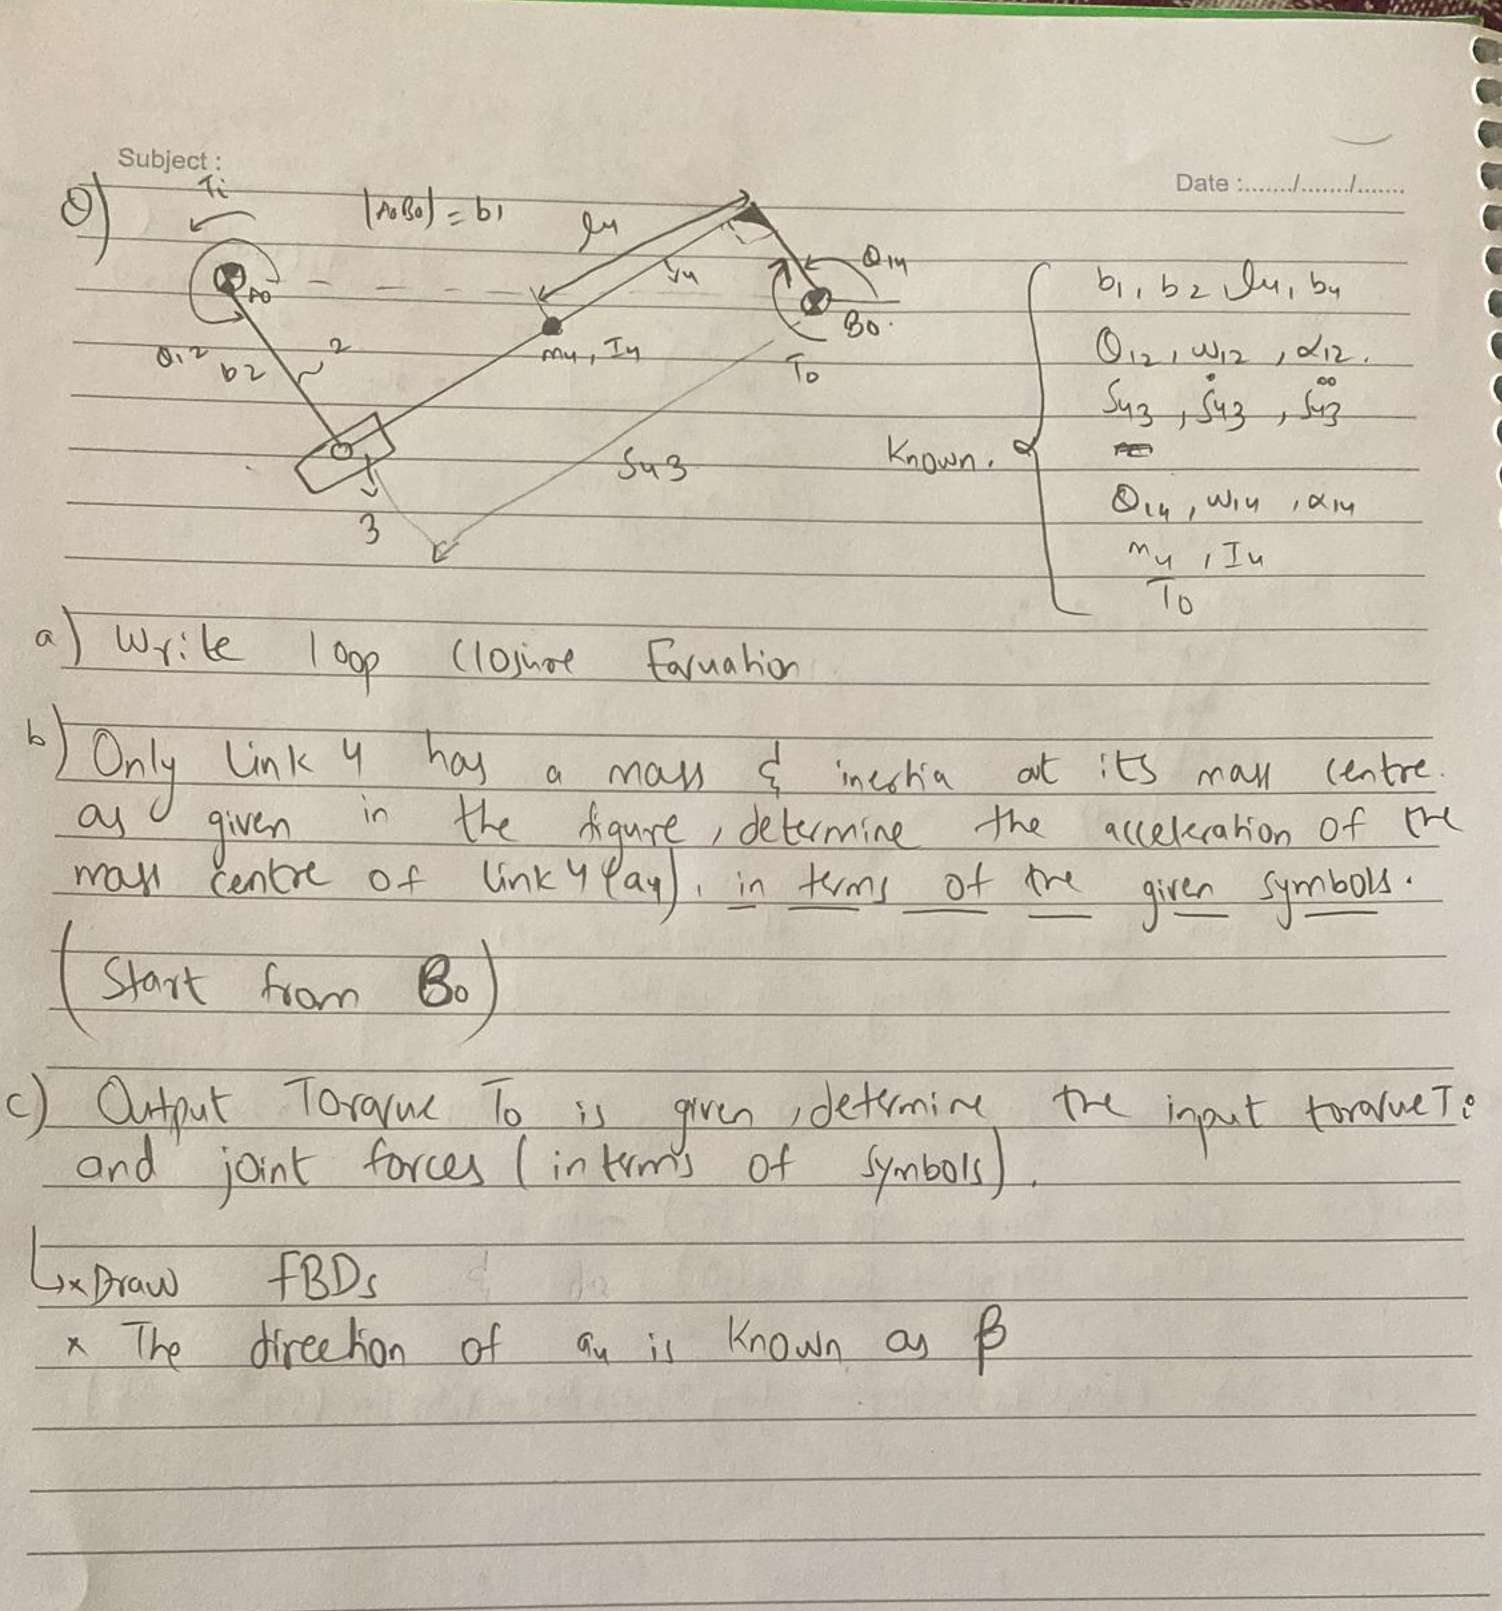 Subject :
Date :......./......./.......
Q)
Ti
|A₀B₀| = b1
l4
θ14
A0
4
B0.
b1, b2, l4, b4
θ12
b2
2
m4, I4
T0
θ12, ω12, α12.
S43, Ṡ43, S̈43
S43
Known.
3
θ14, ω14, α14
m4, I4
T0
a) Write loop closure Equation
b) Only link 4 has a mass & inertia at its mass centre.
as given in the figure, determine the acceleration of the
mass centre of link 4 (a4), in terms of the given symbols.
(Start from B0)
c) Output Torque T0 is given, determine the input torque Ti
and joint forces (in terms of symbols).
↳ * Draw FBDs
* The direction of a4 is known as β